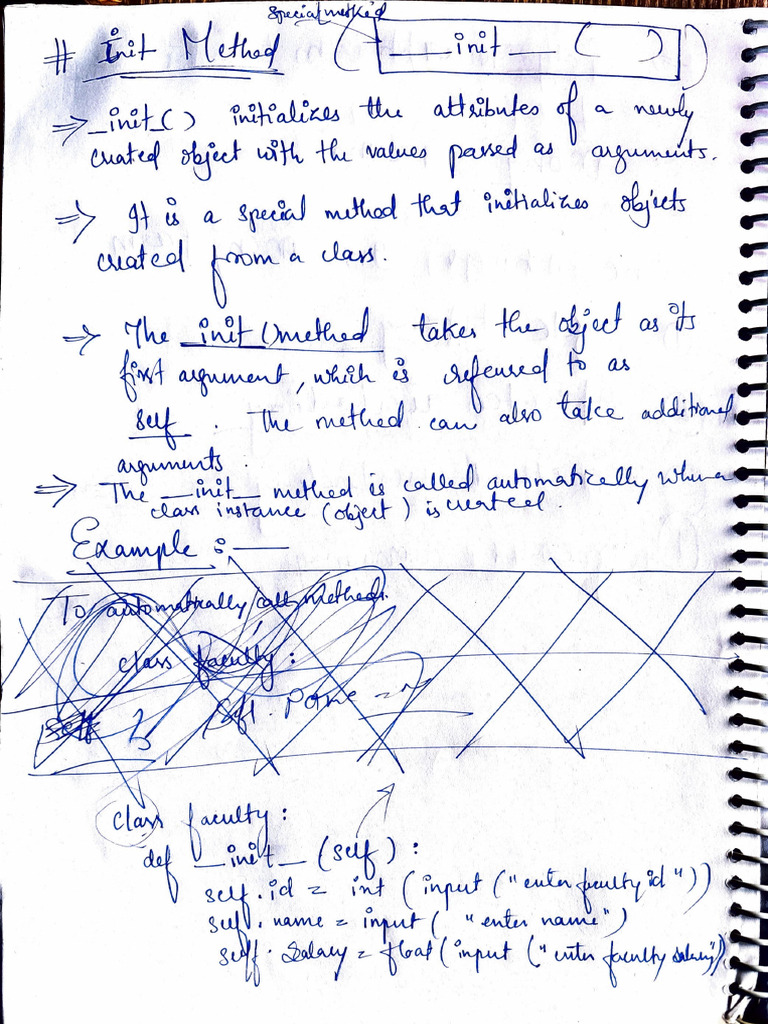 special method
# Init Method ( __init__ ( ) )
⇒ _init_() initializes the attributes of a newly
created object with the values passed as arguments.
⇒ It is a special method that initializes objects
created from a class.
⇒ The _init_()method takes the object as its
first argument, which is referred to as
self. The method can also take additional
arguments.
⇒ The __init_ method is called automatically when a
class instance (object) is created.
Example :—
To automatically call method.
class faculty:
self
class faculty:
def __init_ (self):
self.id = int (input ("enter faculty id"))
self.name = input( "enter name")
self.salary = float(input ("enter faculty salary"))